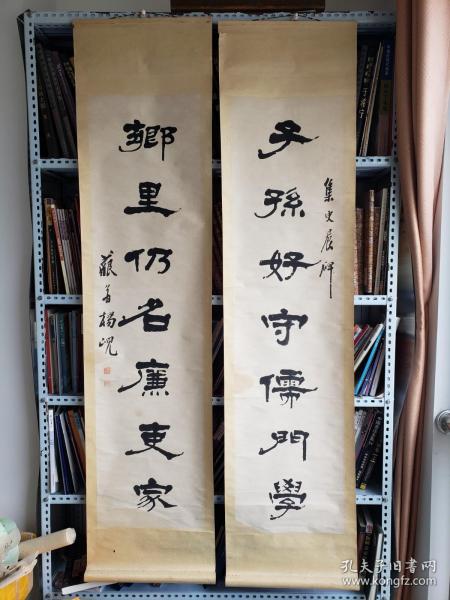 子孫好守儒門學
集史晨碑
鄉里仍名廉吏家
藐翁楊峴
孔夫子旧书网
www.kongfz.com